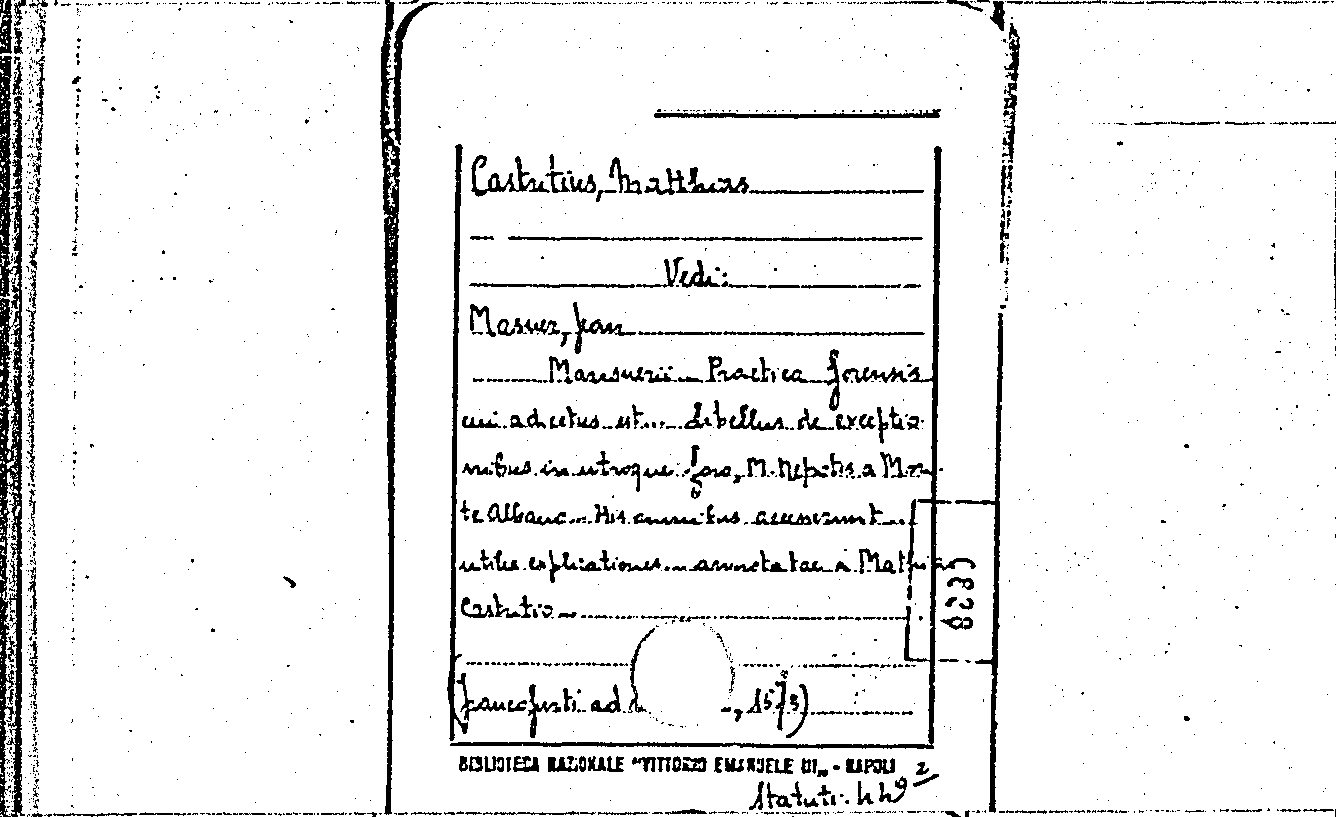 Castritius, Matthias
Vedi:
Masuer, Jean
Masuerii Practica forensis
cui adiectus est... Libellus de exceptio-
nibus in utroque foro, M. Nepotis a Mon-
te Albano... His omnibus accesserunt...
utiles explicationes... annotatae a Mathia
Castritio...
(Francofurti ad , 1573)
BIBLIOTECA NAZIONALE "VITTORIO EMANUELE III„ - NAPOLI
Statuti.